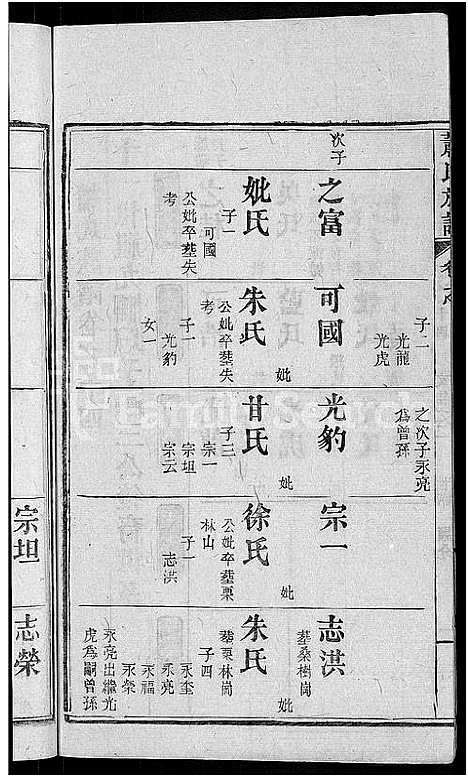 蕭氏族譜
次子
之富
妣氏
子一
可國
公妣卒塟失
考
子二
光龍
光虎
可國
妣
朱氏
公妣卒塟失
考
子一
光豹
女一
之次子永亮
爲曾孫
光豹
妣
甘氏
子三
宗一
宗坦
宗云
宗一
妣
徐氏
公妣卒塟栗
林山
子一
志洪
志洪
塟桑樹崗
妣
朱氏
塟栗林崗
子四
永奎
永亮
永福
永榮
永亮出繼光
虎爲嗣曾孫
宗坦
志榮